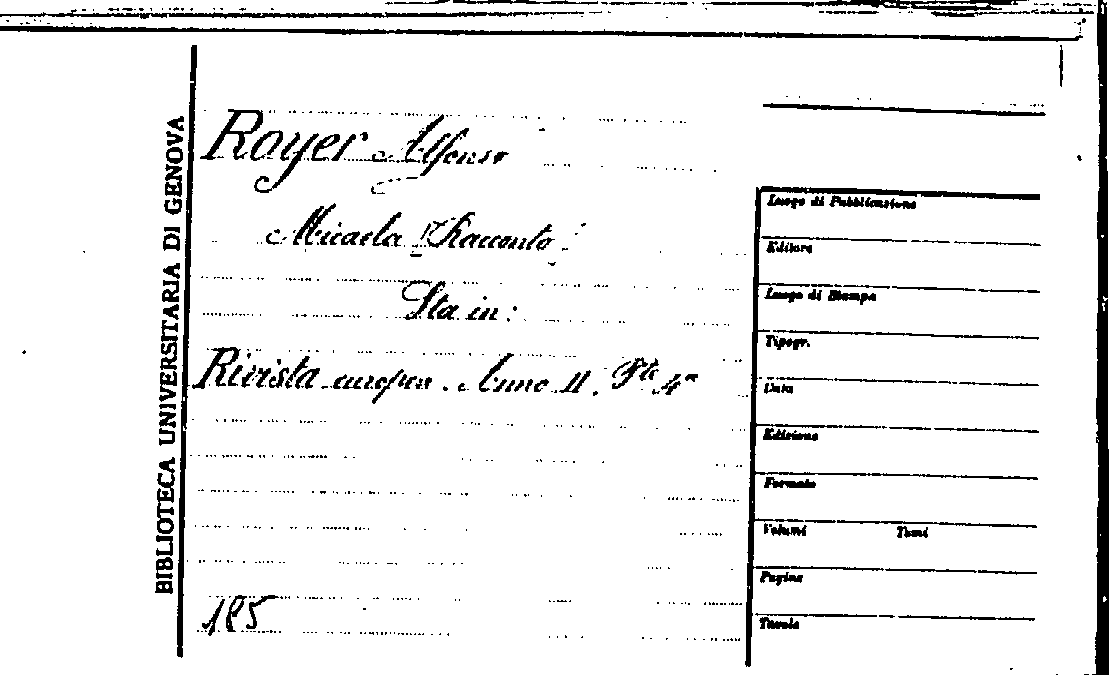 BIBLIOTECA UNIVERSITARIA DI GENOVA
Royer Alfonso
Micaela (Racconto)
Sta in:
Rivista europea. Anno II. Pte 4a
185
Luogo di Pubblicazione
Editore
Luogo di Stampa
Tipogr.
Data
Edizione
Formato
Volumi Tomi
Pagine
Tavole